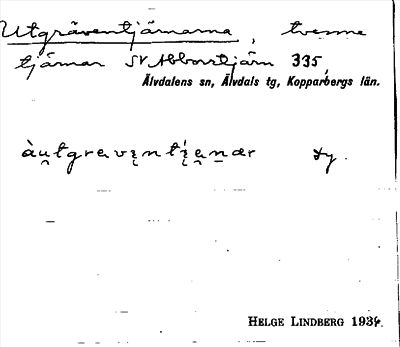 Utgräventjärnarna, tvenne
tjärnar SV Abborrtjärn 335,
Älvdalens sn, Älvdals tg, Kopparbergs län.
àu̯tgravi̯ntí̯a̯n̲ær
HELGE LINDBERG 193